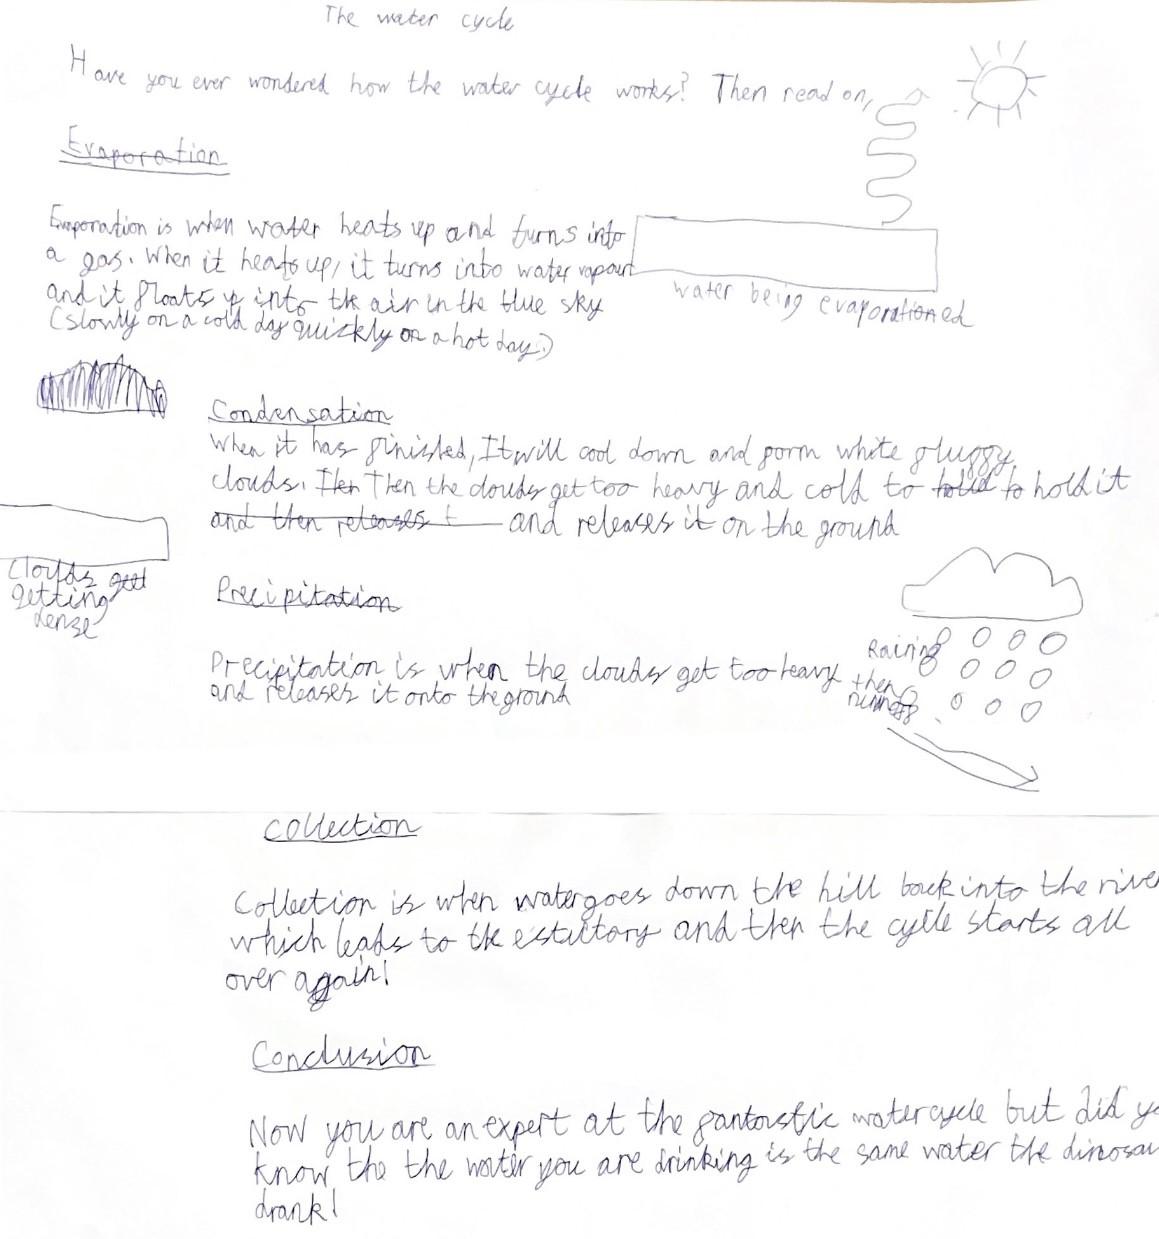 The water cycle
Have you ever wondered how the water cycle works? Then read on,
Evaporation
Evaporation is when water heats up and turns into
a gas. When it heats up, it turns into water vapour
and it floats up into the air in the blue sky
(slowly on a cold day quickly on a hot day.)
water being evaporationed
Condensation
When it has finished, It will cool down and form white fluggy
clouds. Then Then the clouds get too heavy and cold to hold to hold it
and then releases t and releases it on the ground
Clouds get
getting
dense
Precipitation
Precipitation is when the clouds get too heavy
and releases it onto the ground
Raining
then
Collection
Collection is when water goes down the hill back into the river
which leads to the and then the cycle starts all
over again!
Conclusion
Now you are an expert at the fantastic watercycle but did yo
know the the water you are drinking is the same water the dinosau
drank!